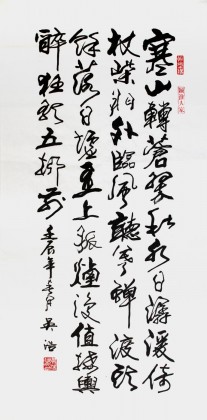 寒山轉蒼翠秋水日潺湲倚
杖柴門外臨風聽暮蟬渡頭
餘落日墟里上孤煙復值接輿
醉狂歌五柳前
壬辰年春月吳